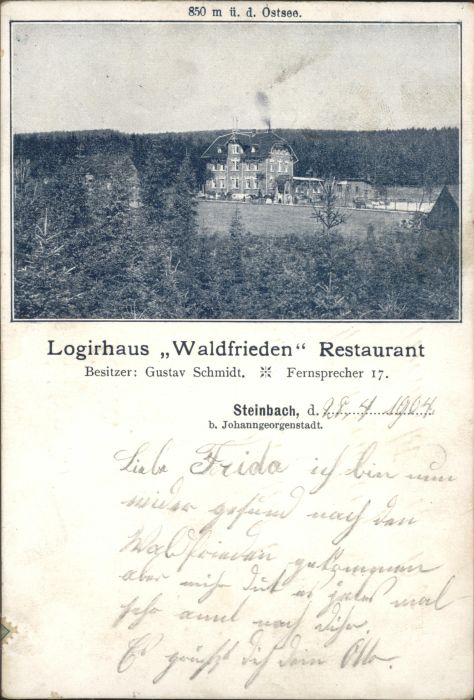 850 m ü. d. Ostsee.
Logirhaus „Waldfrieden“ Restaurant
Besitzer: Gustav Schmidt. ※ Fernsprecher 17.
Steinbach, d. 28. 4 1904.
b. Johanngeorgenstadt.
Liebe Frida ich bin nun
wider gesund nach den
Waldfrieden gekommen
aber mihr dut es jedes mal
sehr annt nach dihr.
Es grüßt dich dein Otto.